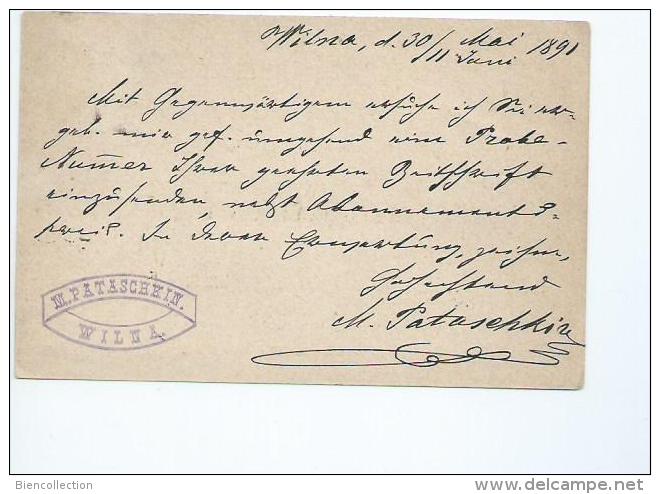 Wilna, d. 30/11 Mai/Juni 1891
Mit Gegenwärtigem ersuche ich Sie er-
geb. mir gef. umgehend eine Probe-
Nummer Ihrer geehrten Zeitschrift
einzusenden, nebst Abonnements-
preis. In deren Erwartung, zeichne,
Hochachtend
M. Pataschkin
M. PATASCHKIN.
WILNA.
Biencollection
www.delcampe.net